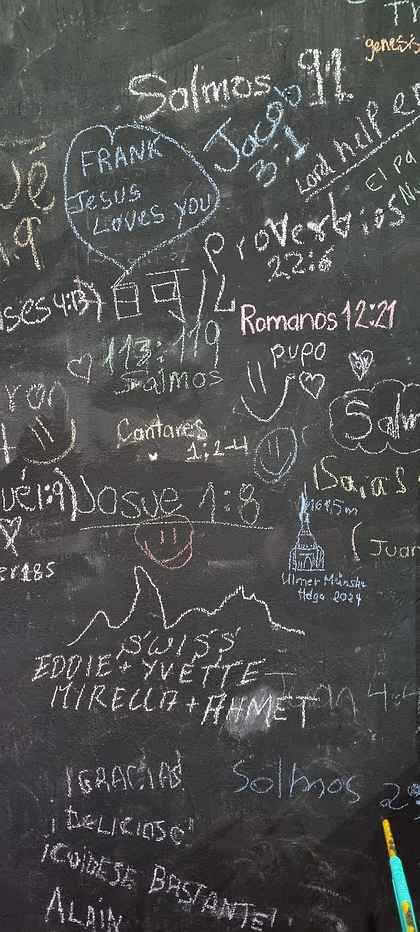 genesis
Salmos 91
Jacob
3:1
Lord help
El pa
FRANK
Jesus
Loves you
Proverbios
22:6
ses 4:13)
Romanos 12:21
113:119
Salmos
pupo
Cantares
1:2-4
Salm
Isaias
ué 1:9)
Josue 1:8
161.5m
(Juan
Ulmer Münster
Helga 2024
SWISS
EDDIE + YVETTE
MIRELLA + AHMET
¡GRACIAS
Salmos 2
¡DELICIOSO!
¡CUIDESE BASTANTE!
ALAIN